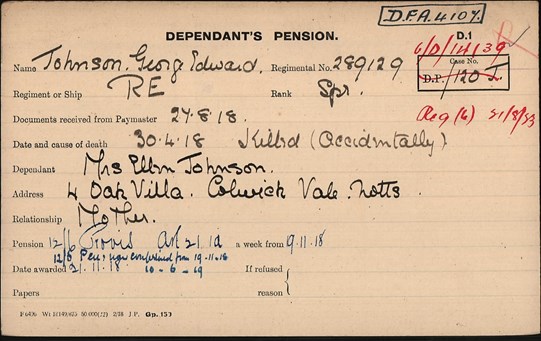 D.F.A. 410%
DEPENDANT'S PENSION.
D.1
6/D/14139
Name Johnson. Georg Edward. Regimental No. 289129
Case No.
D.P. /120
Regiment or Ship RE Rank Spr.
Documents received from Paymaster 27.8.18.
Reg (6) 21/8/33
Date and cause of death 30.4.18 Killed (Accidentally)
Dependant Mrs Ellen Johnson.
Address 4 Oak Villa. Colwick Vale. Notts.
Relationship Mother.
Pension 12/6 Provis Art 21. 1a a week from 9.11.18
12/6 Pension confirmed from 19-11-18
Date awarded 21.11.18 10-6-19 If refused
Papers reason
P 6496 Wt 60,000(22) 2/18 J.P. Gp. 133